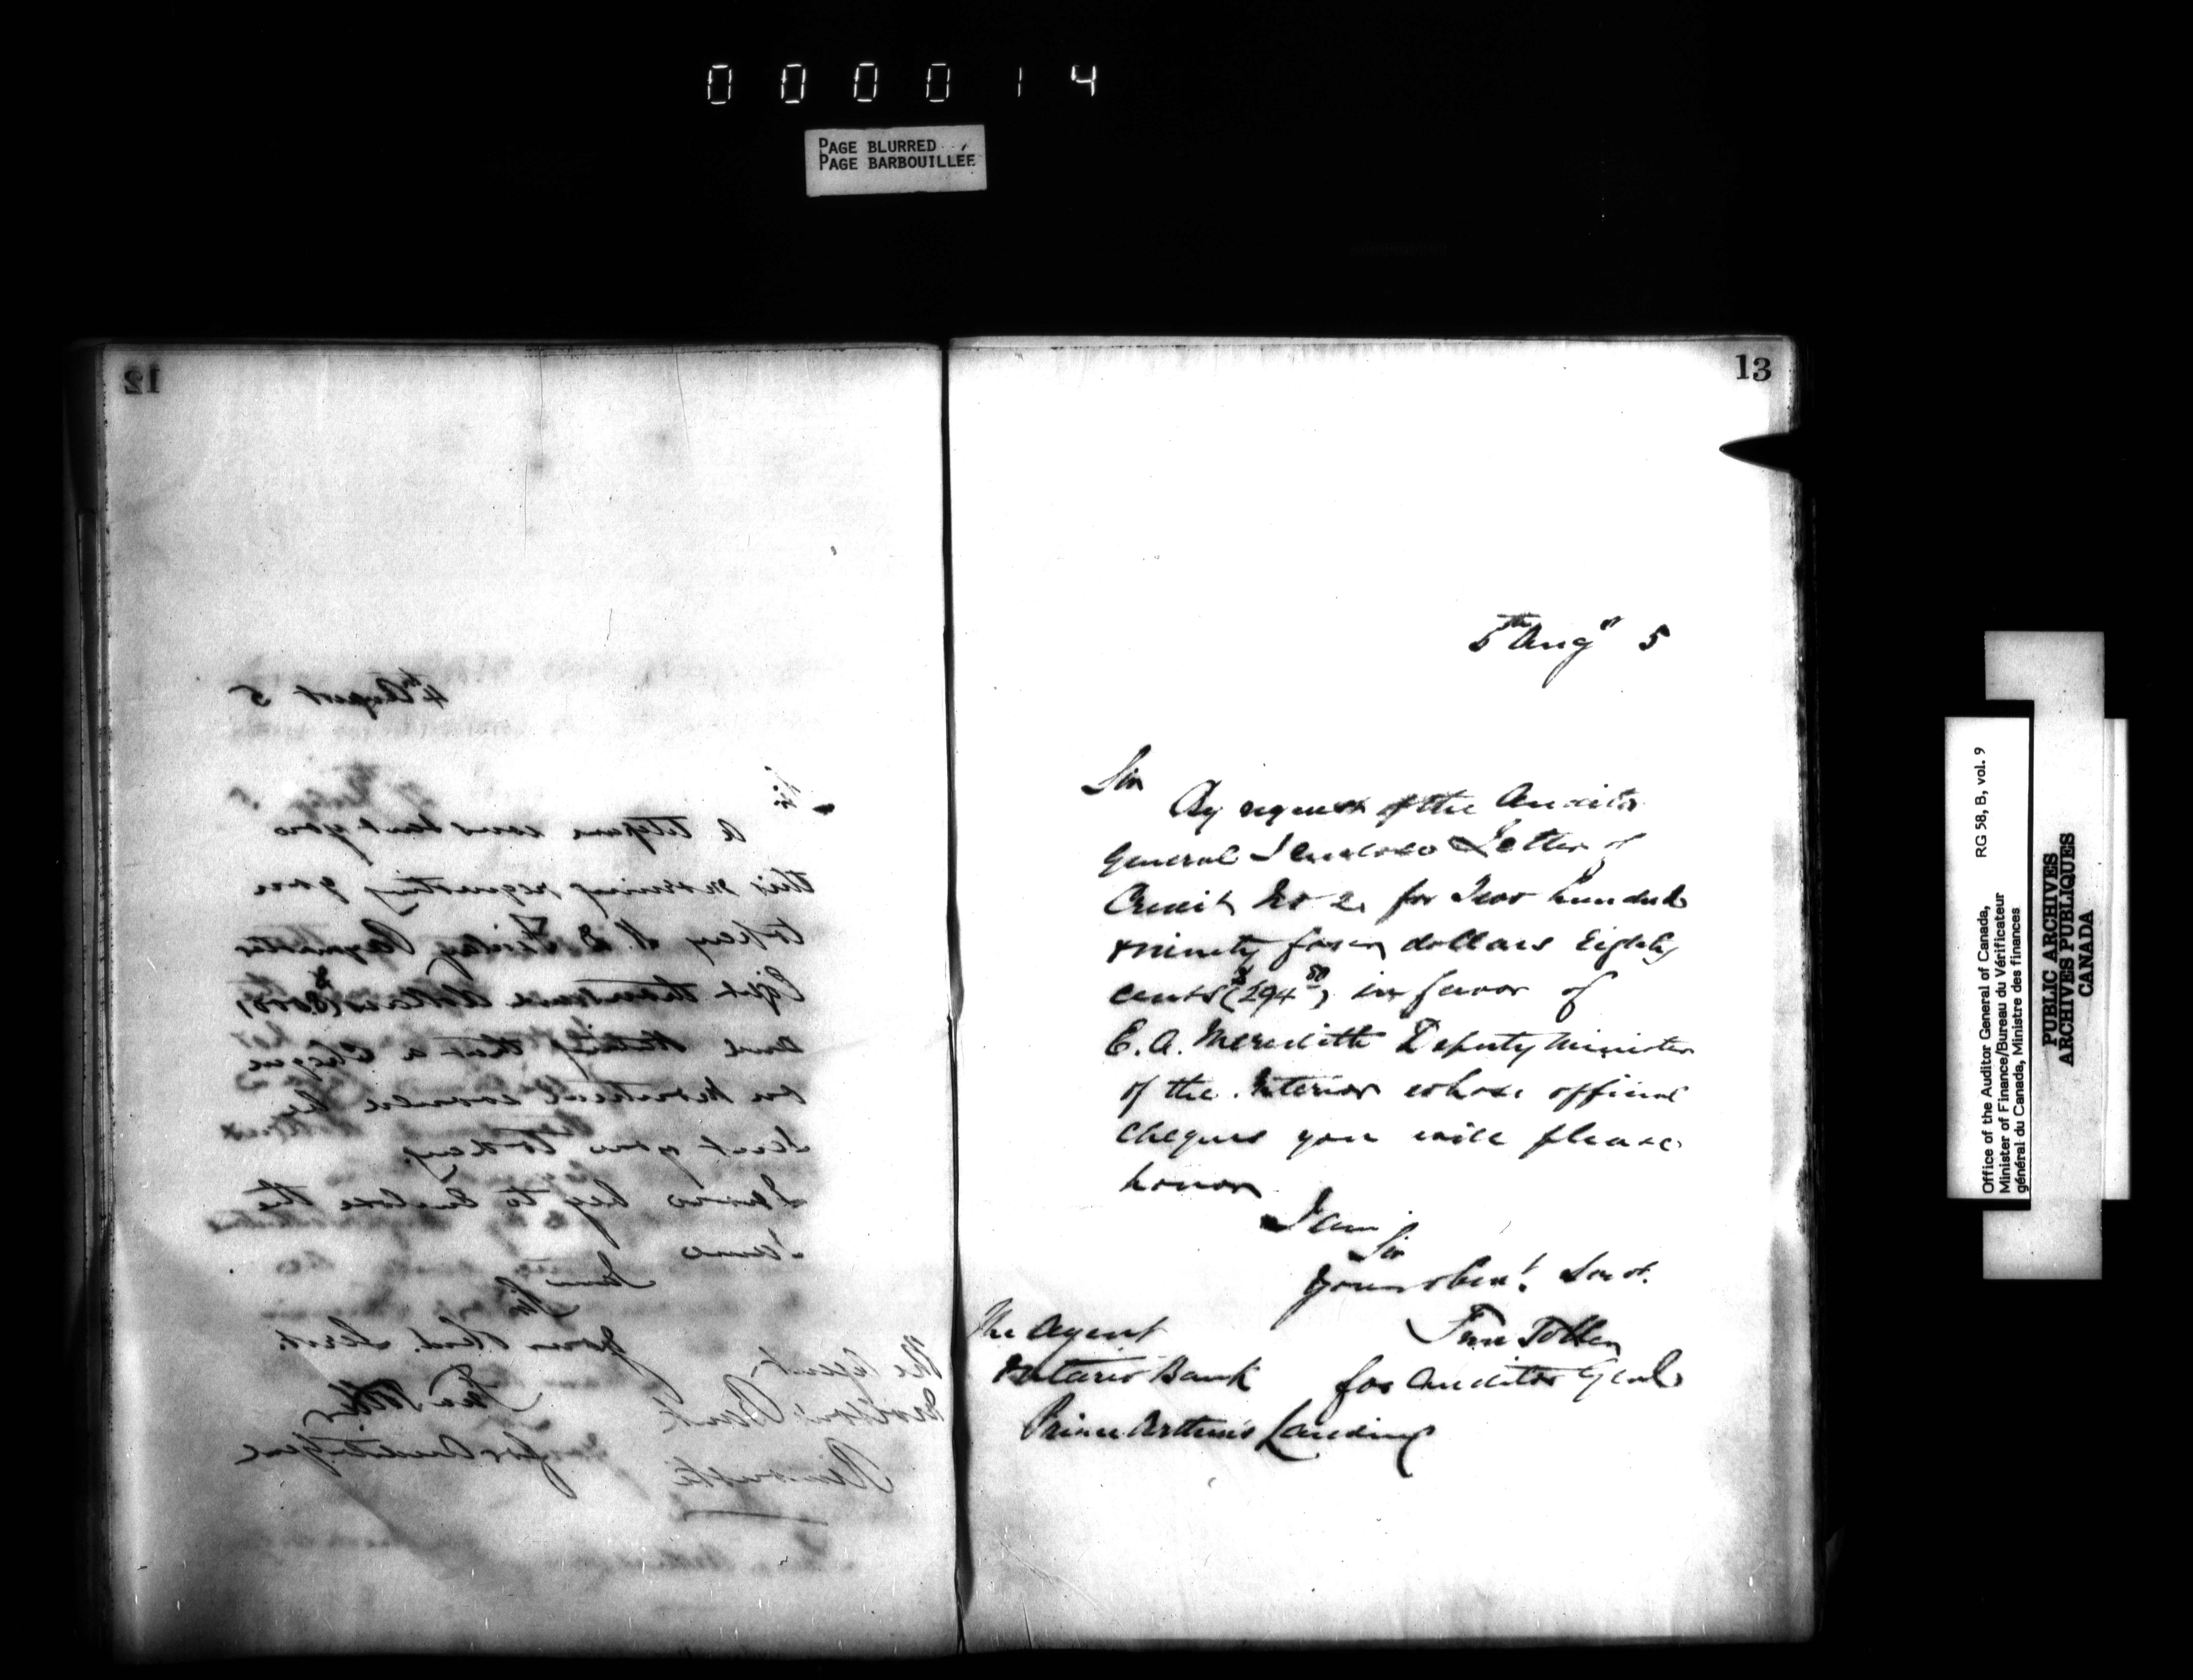 000014
PAGE BLURRED
PAGE BARBOUILLÉE
12
4th August 5
Sir
A telegram was sent you
this morning requesting you
to pay
Eight thousand dollars
and stating that a Cheque
on Montreal would be
sent you today.
I now beg to enclose the
same
I am
Sir
Your Obed. Servt.
for Auditor Genl
The Agent
Bank
13
5th Augst 5
Sir
By request of the Auditor
General I enclose Letter of
Credit No 2 for Two hundred
& ninety four dollars Eighty
cents ($294 80) in favor of
E. A. Meredith Deputy Minister
of the Interior whose official
Cheques you will please
honor
I am
Sir
Your Obent. Servt.
for Auditor Genl.
The Agent
Ontario Bank
Prince Arthur's Landing
Office of the Auditor General of Canada,
Minister of Finance/Bureau du Vérificateur
général du Canada, Ministre des finances
RG 58, B, vol. 9
PUBLIC ARCHIVES
ARCHIVES PUBLIQUES
CANADA